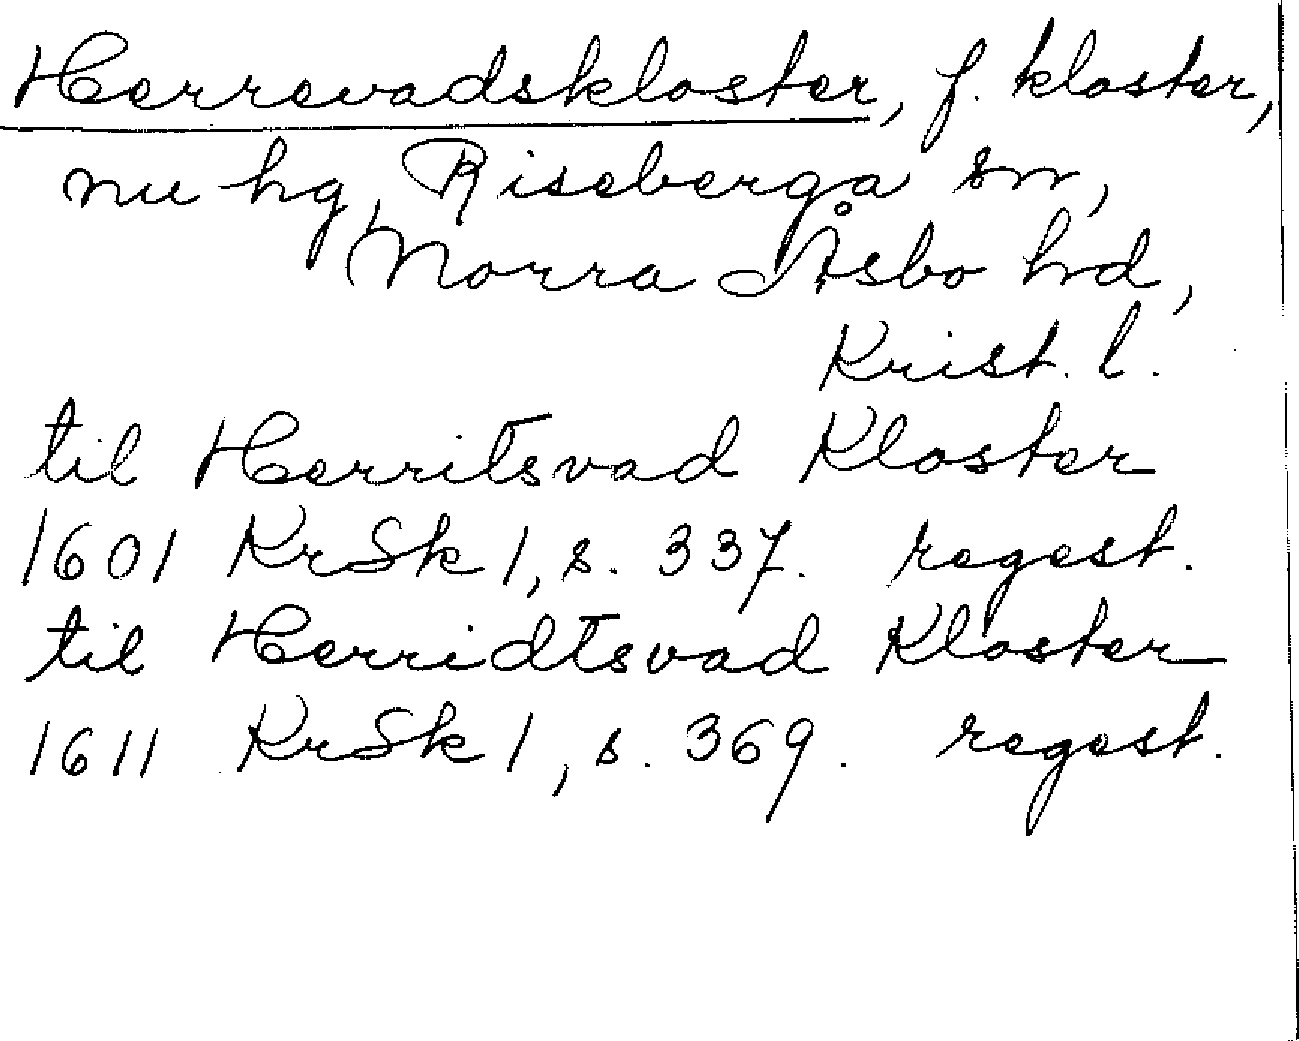 Herrevadskloster, f. kloster,
nu hg, Riseberga sn,
Norra Åsbo hd,
Krist. l.
til Herritsvad Kloster
1601 KrSk 1, s. 337. regest.
til Herridtsvad Kloster
1611 KrSk 1, s. 369. regest.